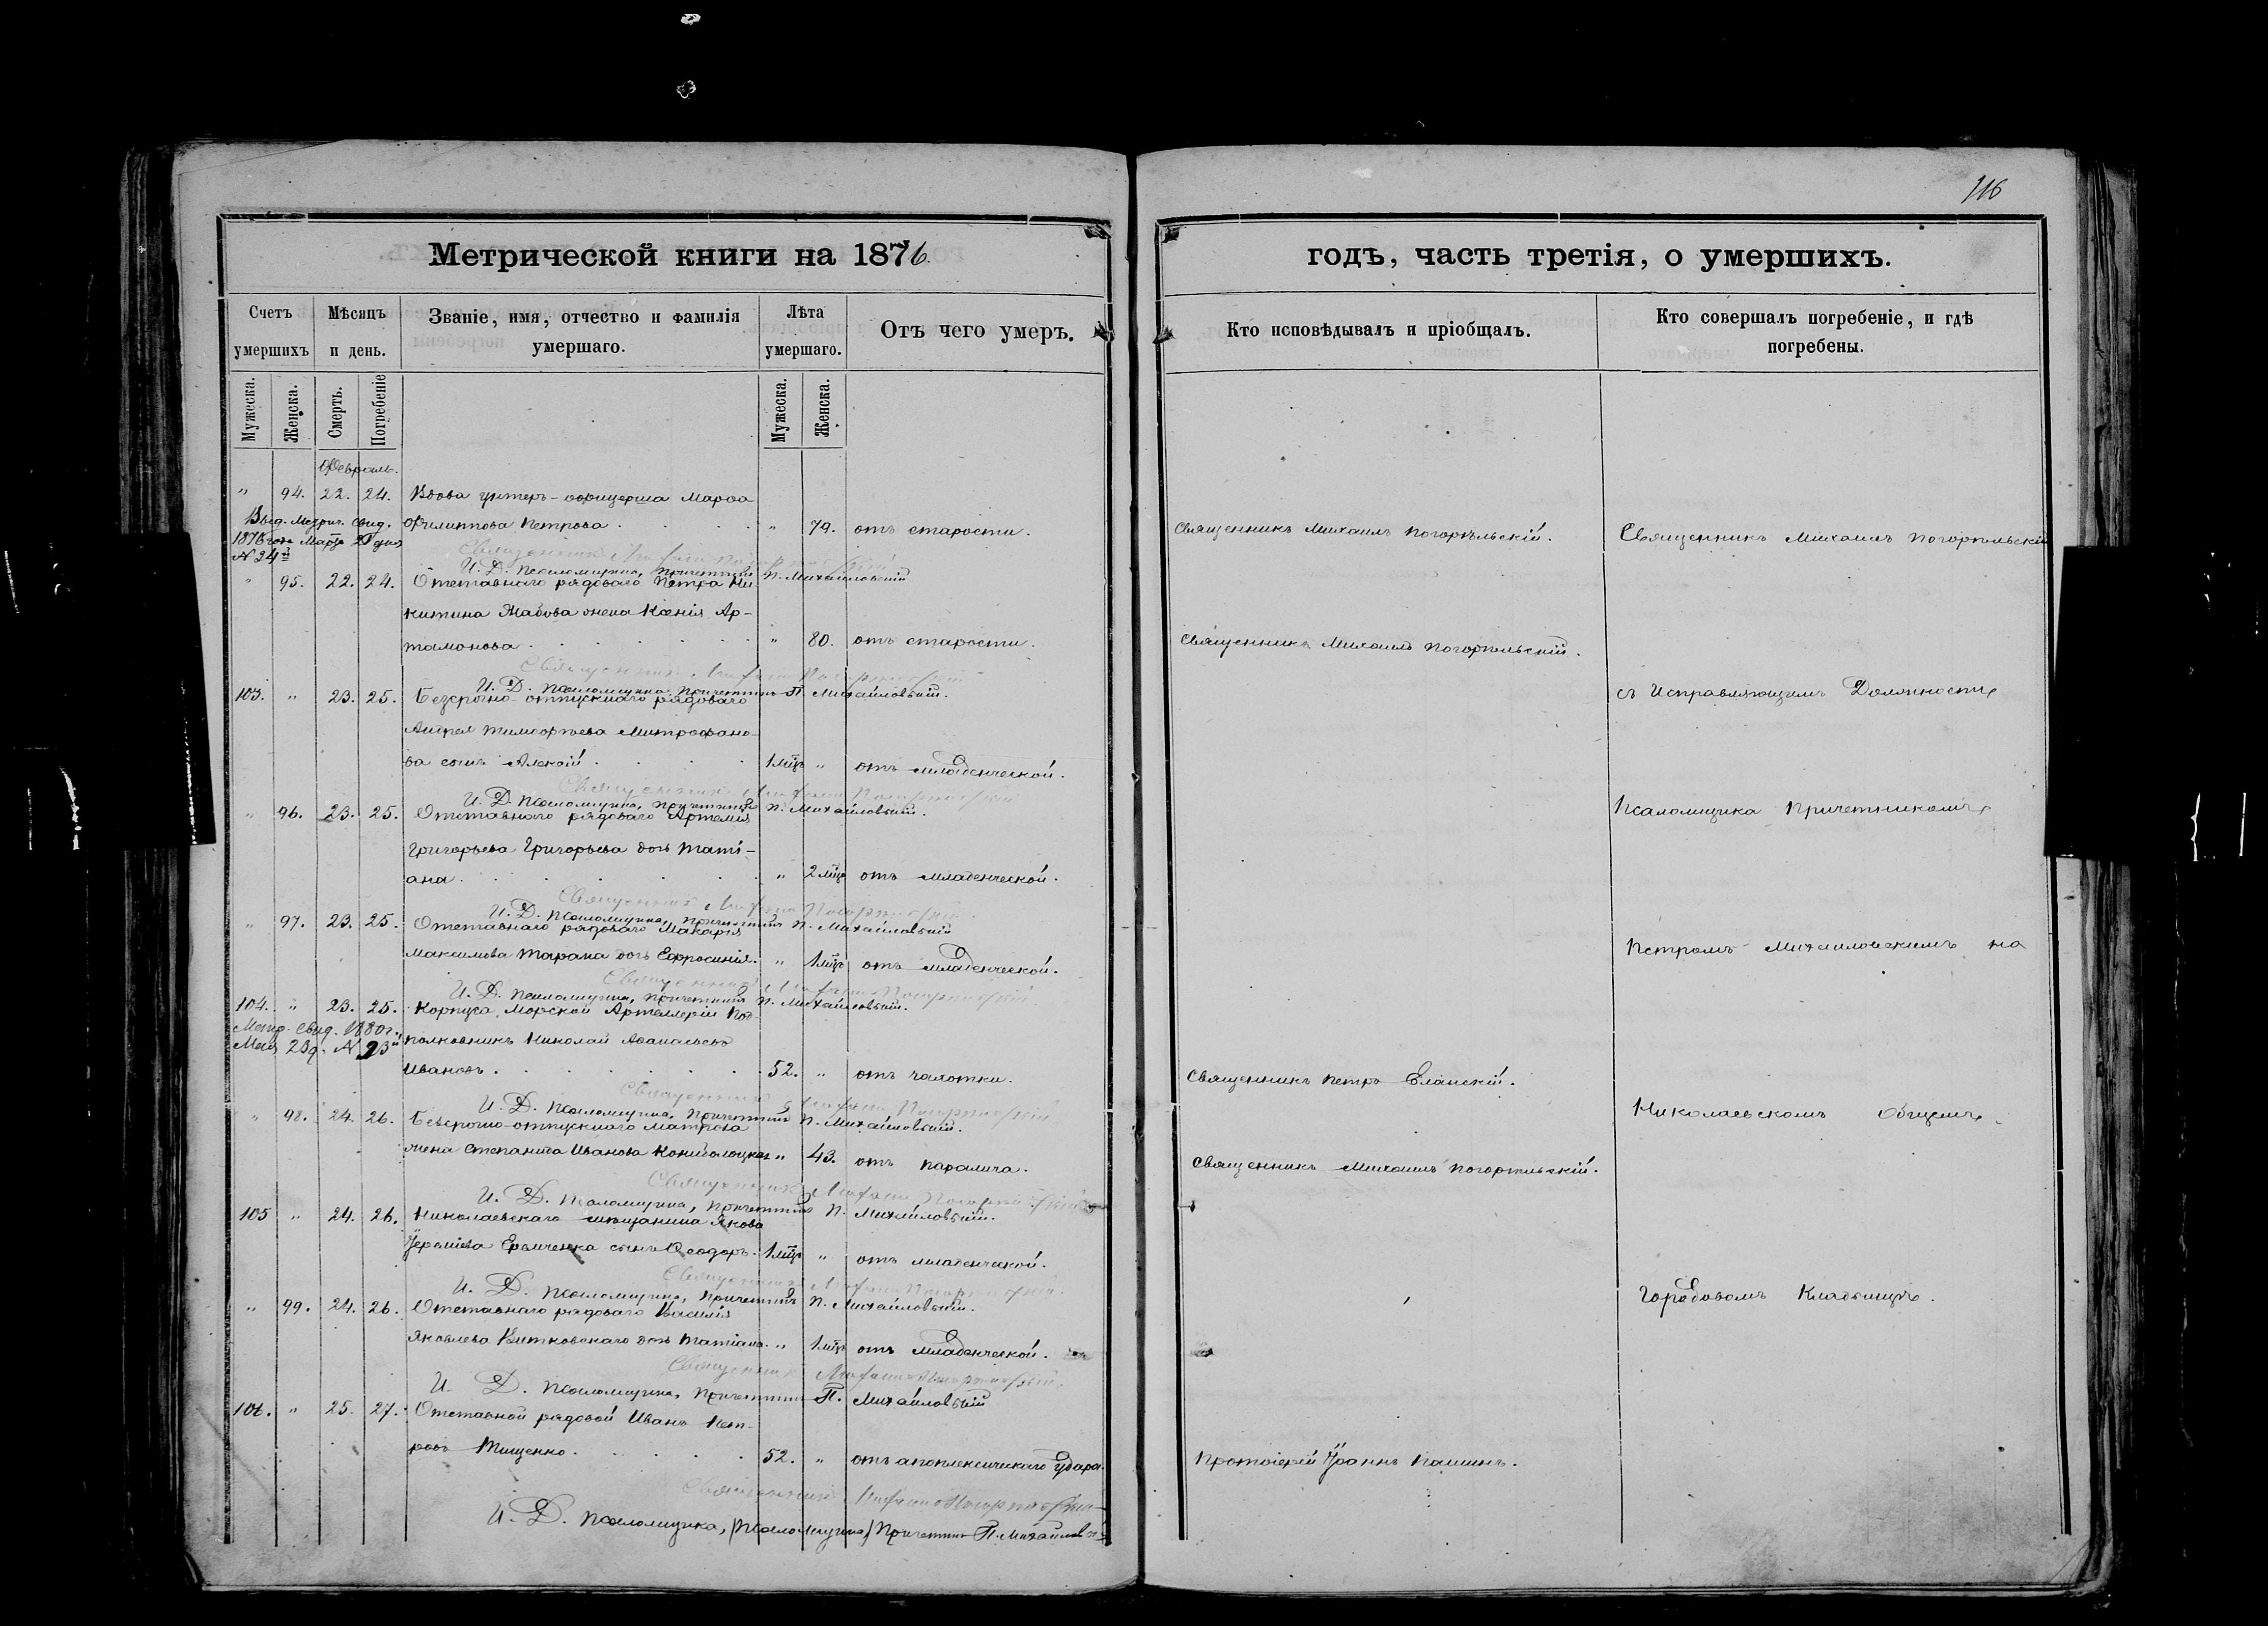 116
Метрической книги на 1876
годъ, часть третія, о умершихъ.
Счетъ умершихъ
Мѣсяцъ и день.
Званіе, имя, отчество и фамилія умершаго.
Лѣта умершаго.
Отъ чего умеръ.
Кто исповѣдывалъ и пріобщалъ.
Кто совершалъ погребеніе, и гдѣ погребены.
Мужеска.
Женска.
Смерть.
Погребеніе
Мужеска.
Женска.
Февраль.
" 94. 22. 24. Вдова унтеръ-офицерша Марѳа
Филиппова Петрова . " 79. отъ старости. Священникъ Михаилъ Погорѣльскій. Священникъ Михаилъ Погорѣльскій
Выд. Метрич. свид.
1876 года Марта дня
№ 24й
Священникъ Михаилъ Погорѣльскій
И. Д. Псаломщика, Причетникъ П. Михайловскій
" 95. 22. 24. Отставнаго рядоваго Петра Ни-
китина Жабова жена Ксенія Ар-
тамонова . " 80. отъ старости. Священникъ Михаилъ Погорѣльскій.
Священникъ Михаилъ Погорѣльскій
И. Д. Псаломщика Причетникъ П. Михайловскій.
103. " 23. 25. Безсрочно-отпускнаго рядоваго съ Исправляющимъ Должность
Андрея Тимофѣева Митрофано-
ва сынъ Алексій . 1 мцъ " отъ младенческой.
Священникъ Михаилъ Погорѣльскій
И. Д. Псаломщика, Причетникъ П. Михайловскій.
" 96. 23. 25. Отставнаго рядоваго Артемія Псаломщика Причетникомъ
Григорьева Григорьева дочь Таті-
ана . " 2 мца отъ младенческой.
Священникъ Михаилъ Погорѣльскій
И. Д. Псаломщика, Причетникъ П. Михайловскій
" 97. 23. 25. Отставнаго рядоваго Макарія
Максимова Тарана дочь Евфросинія. " 1 мцъ отъ младенческой. Петромъ Михайловскимъ на
Священникъ Михаилъ Погорѣльскій
И. Д. Псаломщика, Причетникъ П. Михайловскій.
104. " 23. 25. Корпуса Морской Артиллеріи Под-
полковникъ Николай Аѳанасьевъ
Ивановъ . 52. " отъ чахотки. Священникъ Петръ Еланскій.
Метр. свид. 1880 г.
Мая 23 д. №
Священникъ Михаилъ Погорѣльскій
И. Д. Псаломщика, Причетникъ П. Михайловскій.
" 98. 24. 26. Безсрочно-отпускнаго матроса Николаевскомъ общемъ
жена Степанида Иванова " 43. отъ паралича. Священникъ Михаилъ Погорѣльскій.
Священникъ Михаилъ Погорѣльскій
И. Д. Псаломщика, Причетникъ П. Михайловскій.
105 " 24. 26. Николаевскаго мѣщанина Якова
Іереміева Еремченка сынъ Ѳеодоръ. 1 мцъ " отъ младенческой.
Священникъ Михаилъ Погорѣльскій
И. Д. Псаломщика, Причетникъ П. Михайловскій.
" 99. 24. 26. Отставнаго рядоваго Василія Городовомъ Кладбищѣ.
Яковлева Витковскаго дочь Татіана. " 1 мцъ отъ младенческой.
Священникъ Михаилъ Погорѣльскій.
И. Д. Псаломщика, Причетникъ П. Михайловскій
106. " 25. 27. Отставной рядовой Иванъ Пет-
ровъ Тищенко . 52. " отъ апоплексическаго удара. Протоіерей Іоаннъ Пашинъ.
Священникъ Михаилъ Погорѣльскій
И. Д. Псаломщика, (Псаломщика) Причетникъ П. Михайловскій